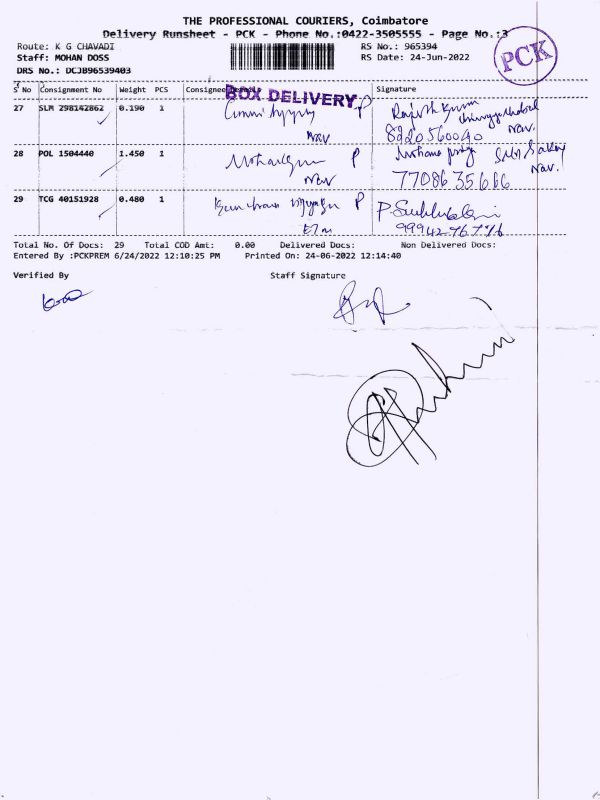 THE PROFESSIONAL COURIERS, Coimbatore
Delivery Runsheet - PCK - Phone No.:0422-3505555 - Page No.:3
Route: K G CHAVADI
RS No.: 965394
PCK
Staff: MOHAN DOSS
RS Date: 24-Jun-2022
DRS No.: DCJB96539403
S No Consignment No Weight PCS Consignee Details Signature
BOX DELIVERY
27 SLM 298142862 0.190 1 P
8220560040
28 POL 1504440 1.450 1 P
7708635666
29 TCG 40151928 0.480 1 P
9994276776
Total No. Of Docs: 29 Total COD Amt: 0.00 Delivered Docs: Non Delivered Docs:
Entered By :PCKPREM 6/24/2022 12:10:25 PM Printed On: 24-06-2022 12:14:40
Verified By Staff Signature